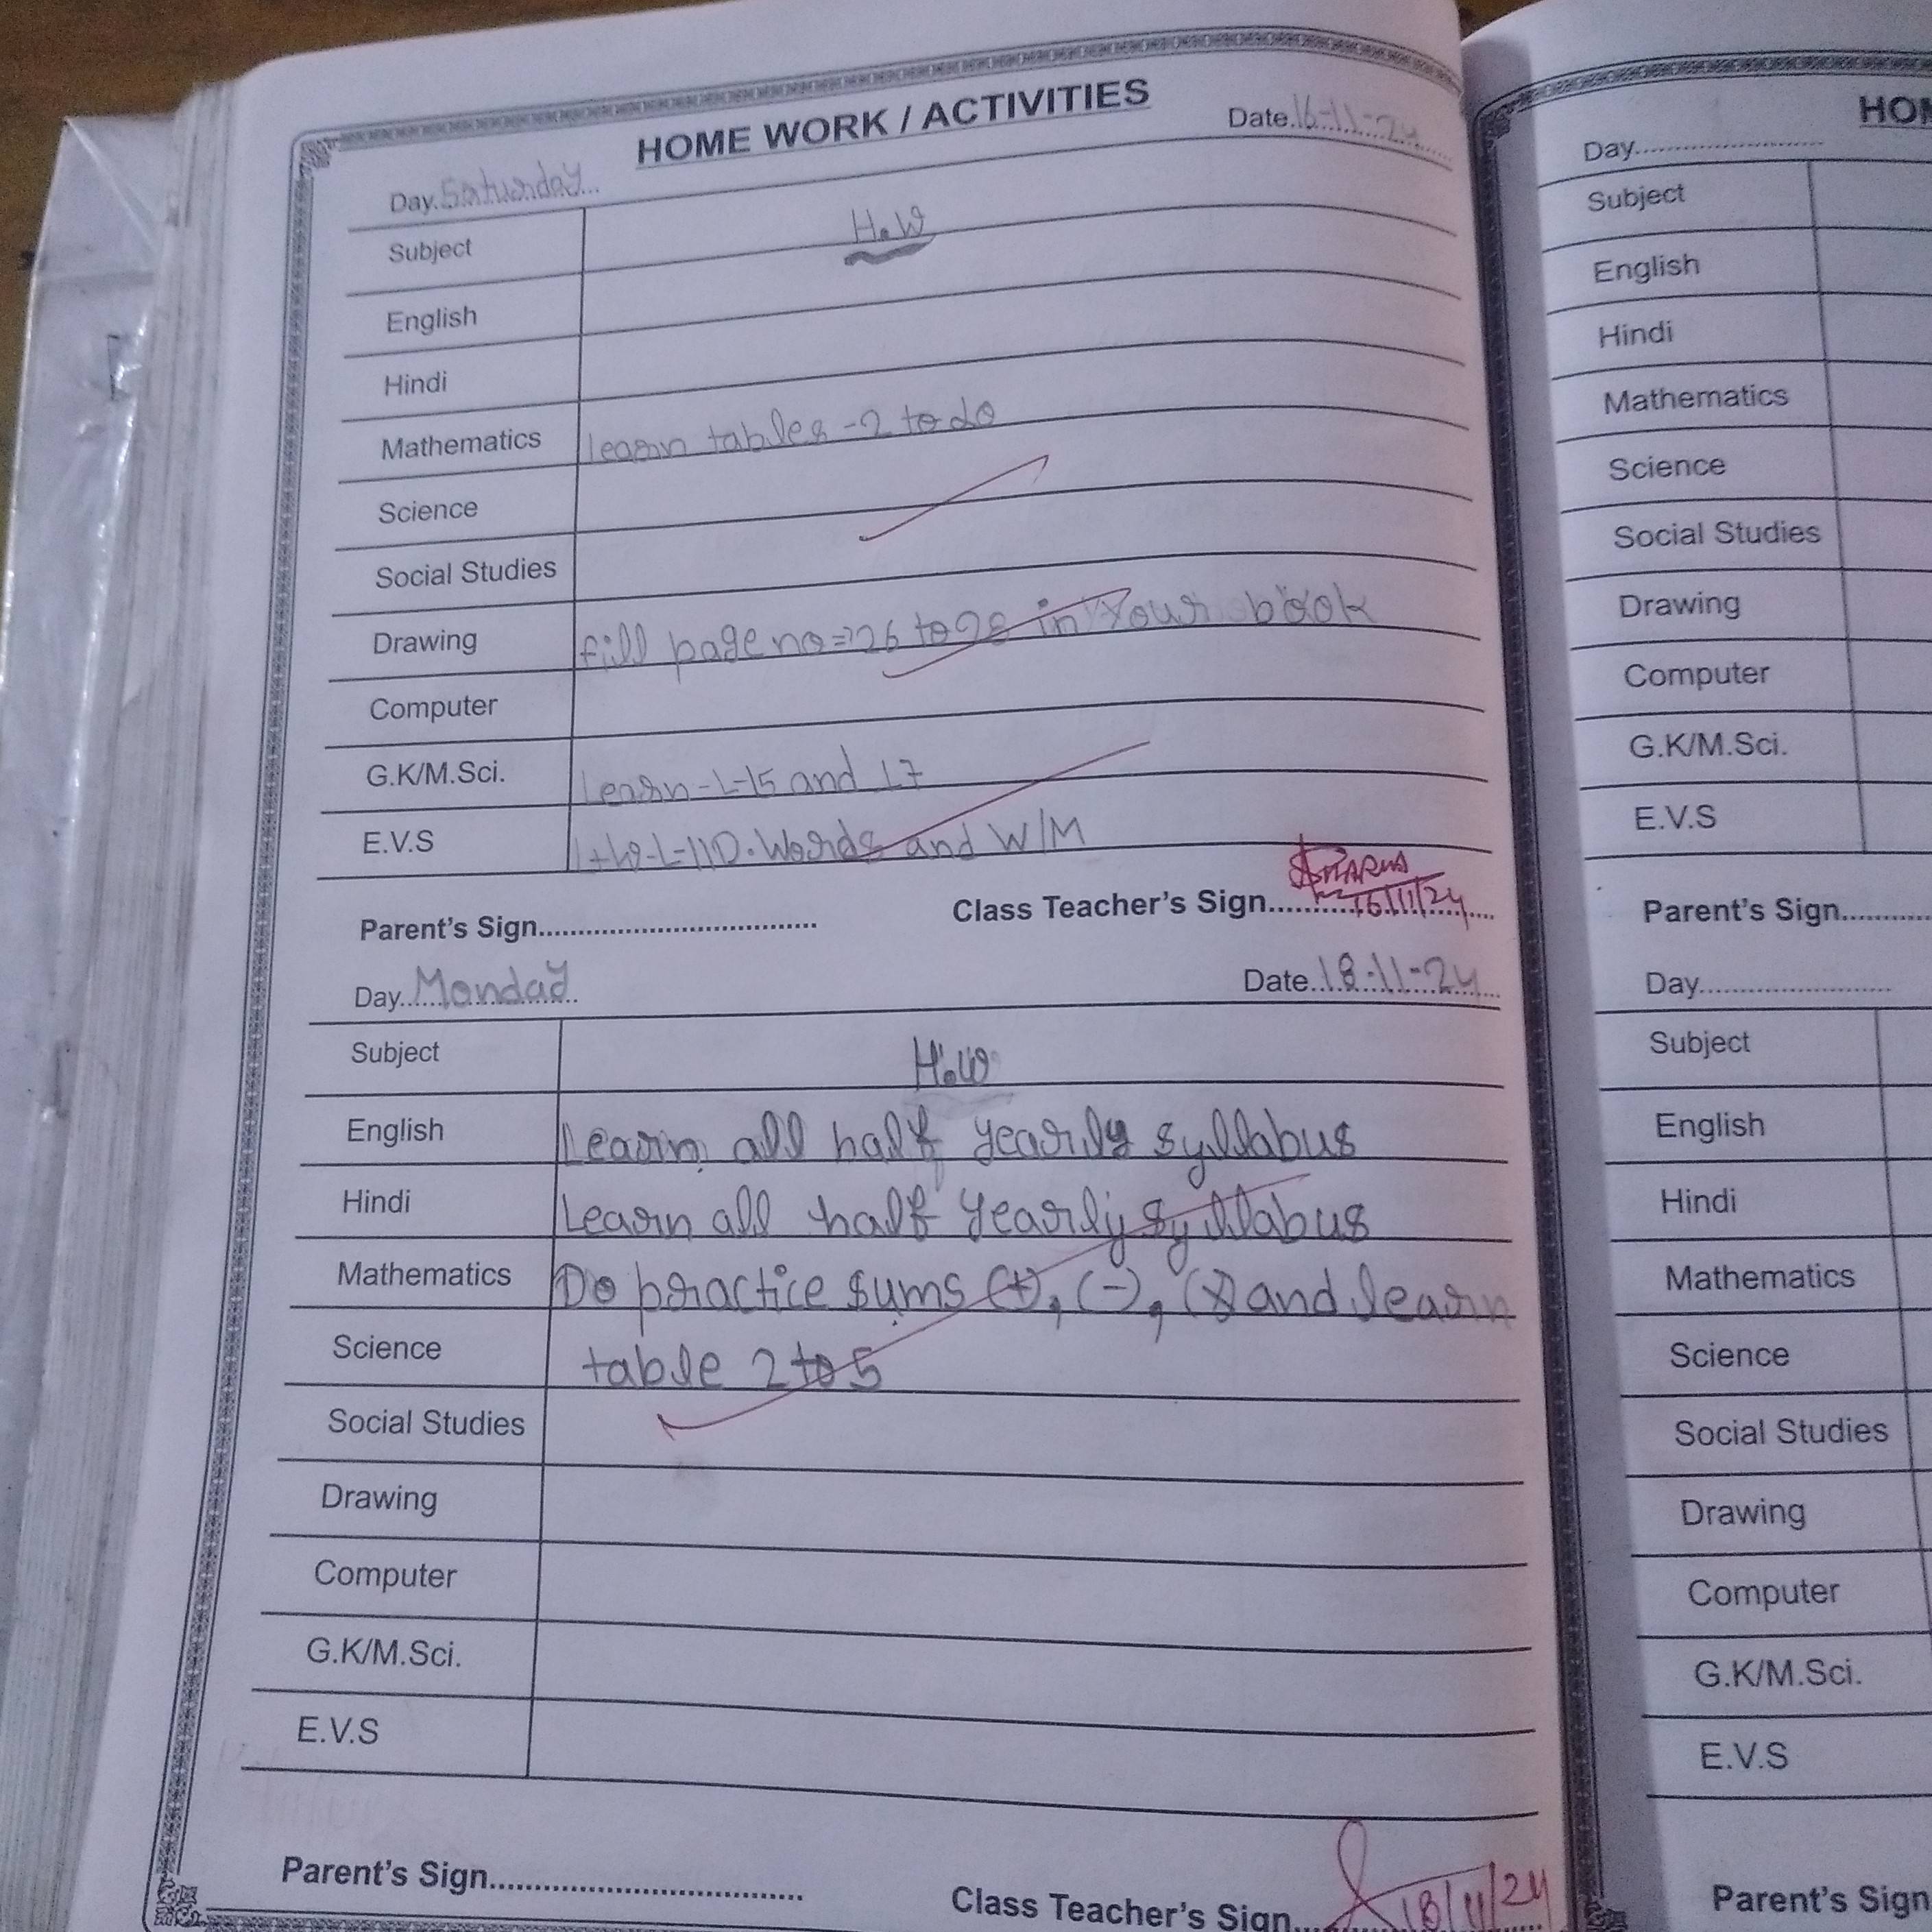 HOME WORK / ACTIVITIES
Day. Saturday... Date. 16-11-24
Subject H.W
English
Hindi
Mathematics learn tables -2 to do
Science
Social Studies
Drawing fill page no= 26 to 28 in your book
Computer
G.K/M.Sci. Learn-L-15 and 17
E.V.S L-11 D. Words and W/M
Parent's Sign................................... Class Teacher's Sign.......... 16/11/24
Day..Monday Date..18-11-24
Subject H.W
English Learn all half yearly syllabus
Hindi Learn all half yearly syllabus
Mathematics Do practice sums (+), (-), (x) and learn
Science table 2 to 5
Social Studies
Drawing
Computer
G.K/M.Sci.
E.V.S
Parent's Sign....................................... Class Teacher's Sign... 18/11/24
Day........................
Subject
English
Hindi
Mathematics
Science
Social Studies
Drawing
Computer
G.K/M.Sci.
E.V.S
Parent's Sign..........
Day........................
Subject
English
Hindi
Mathematics
Science
Social Studies
Drawing
Computer
G.K/M.Sci.
E.V.S
Parent's Sign